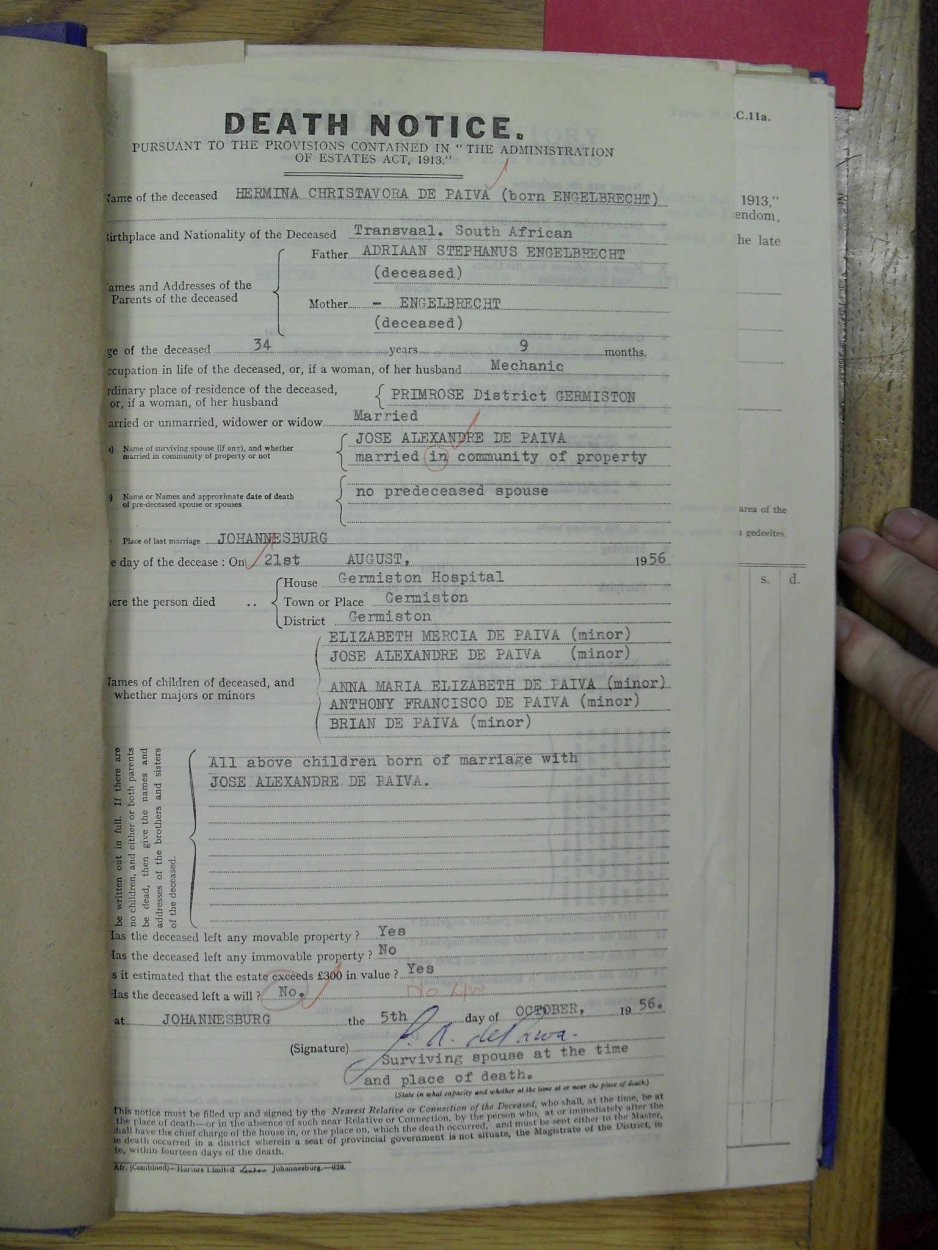 DEATH NOTICE.
PURSUANT TO THE PROVISIONS CONTAINED IN "THE ADMINISTRATION
OF ESTATES ACT, 1913."
.C.11a.
1913,"
endom,
he late
area of the
gedeeltes.
s. d.
ame of the deceased HERMINA CHRISTAVORA DE PAIVA (born ENGELBRECHT)
irthplace and Nationality of the Deceased Transvaal. South African
Father ADRIAAN STEPHANUS ENGELBRECHT
(deceased)
ames and Addresses of the
Parents of the deceased
Mother - ENGELBRECHT
(deceased)
ge of the deceased 34 years 9 months.
ccupation in life of the deceased, or, if a woman, of her husband Mechanic
rdinary place of residence of the deceased,
or, if a woman, of her husband
PRIMROSE District GERMISTON
arried or unmarried, widower or widow Married
) Name of surviving spouse (if any), and whether
married in community of property or not
JOSE ALEXANDRE DE PAIVA
married in community of property
) Name or Names and approximate date of death
of pre-deceased spouse or spouses
no predeceased spouse
Place of last marriage JOHANNESBURG
e day of the decease : On 21st AUGUST, 1956
ere the person died ..
House Germiston Hospital
Town or Place Germiston
District Germiston
ames of children of deceased, and
whether majors or minors
ELIZABETH MERCIA DE PAIVA (minor)
JOSE ALEXANDRE DE PAIVA (minor)
ANNA MARIA ELIZABETH DE PAIVA (minor)
ANTHONY FRANCISCO DE PAIVA (minor)
BRIAN DE PAIVA (minor)
be written out in full. If there are
no children, and either or both parents
be dead, then give the names and
addresses of the brothers and sisters
of the deceased.
All above children born of marriage with
JOSE ALEXANDRE DE PAIVA.
Has the deceased left any movable property ? Yes
Has the deceased left any immovable property ? No
s it estimated that the estate exceeds £300 in value ? Yes
Has the deceased left a will ? No.
at JOHANNESBURG the 5th day of OCTOBER, 1956.
(Signature) J. A. de Paiva.
Surviving spouse at the time
and place of death.
(State in what capacity and whether at the time at or near the place of death)
This notice must be filled up and signed by the Nearest Relative or Connection of the Deceased, who shall, at the time, be at
the place of death—or in the absence of such near Relative or Connection, by the person who, at or immediately after the
hall have the chief charge of the house in, or the place on, which the death occurred, and must be sent either to the Master,
e death occurred in a district wherein a seat of provincial government is not situate, the Magistrate of the District, in
te, within fourteen days of the death.
Afr. (Combined)—Hortors Limited Johannesburg.